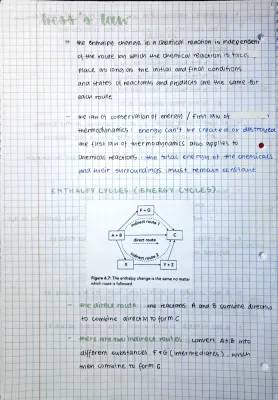 hess's law
the enthalpy change in a chemical reaction is independent
of the route by which the chemical reaction is take
place as long as the initial and final conditions
and states of reactants and products are the same for
each route
the law of conservation of energy / first law of
thermodynamics: energy can't be created or destroyed
the first law of thermodynamics also applies to
chemical reactions: the total energy of the chemicals
and their surroundings must remain constant
ENTHALPY CYCLES (ENERGY CYCLES)
F + G
indirect route 1
A + B
direct route
C
indirect route 2
X
Y + Z
Figure 6.7: The enthalpy change is the same no matter
which route is followed.
the direct route: the reactants A and B combine directly
to combine directly to form C
there are two indirect routes: convert A+B into
different substances F+G (intermediates), which
then combine to form C